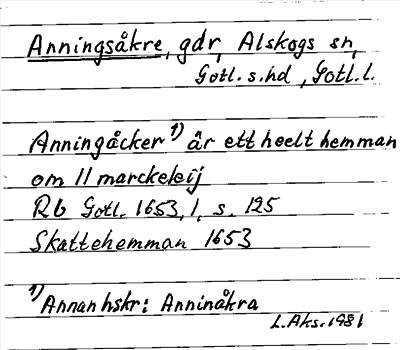 Anningsåkre, gdr, Alskogs sn,
Gotl. s. hd, Gotl. l.
Anningåcker 1) är ett heelt hemman
om 11 marckeleij
Rb Gotl. 1653, 1, s. 125
Skattehemman 1653
1) Annan hskr: Anninåkra
L. Aks. 1981